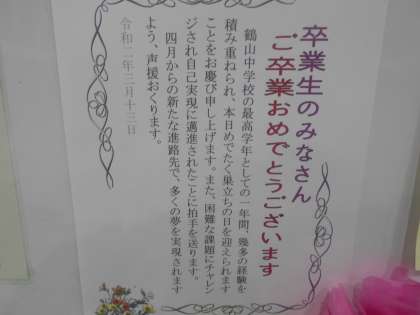 卒業生のみなさん
ご卒業おめでとうございます
鶴山中学校の最高学年としての一年間、幾多の経験を
積み重ねられ、本日めでたく巣立ちの日を迎えられます
ことをお慶び申し上げます。また、困難な課題にチャレン
ジされ自己実現に邁進されたことに拍手を送ります。
四月からの新たな進路先で、多くの夢を実現されます
よう、声援おくります。
令和二年三月十三日